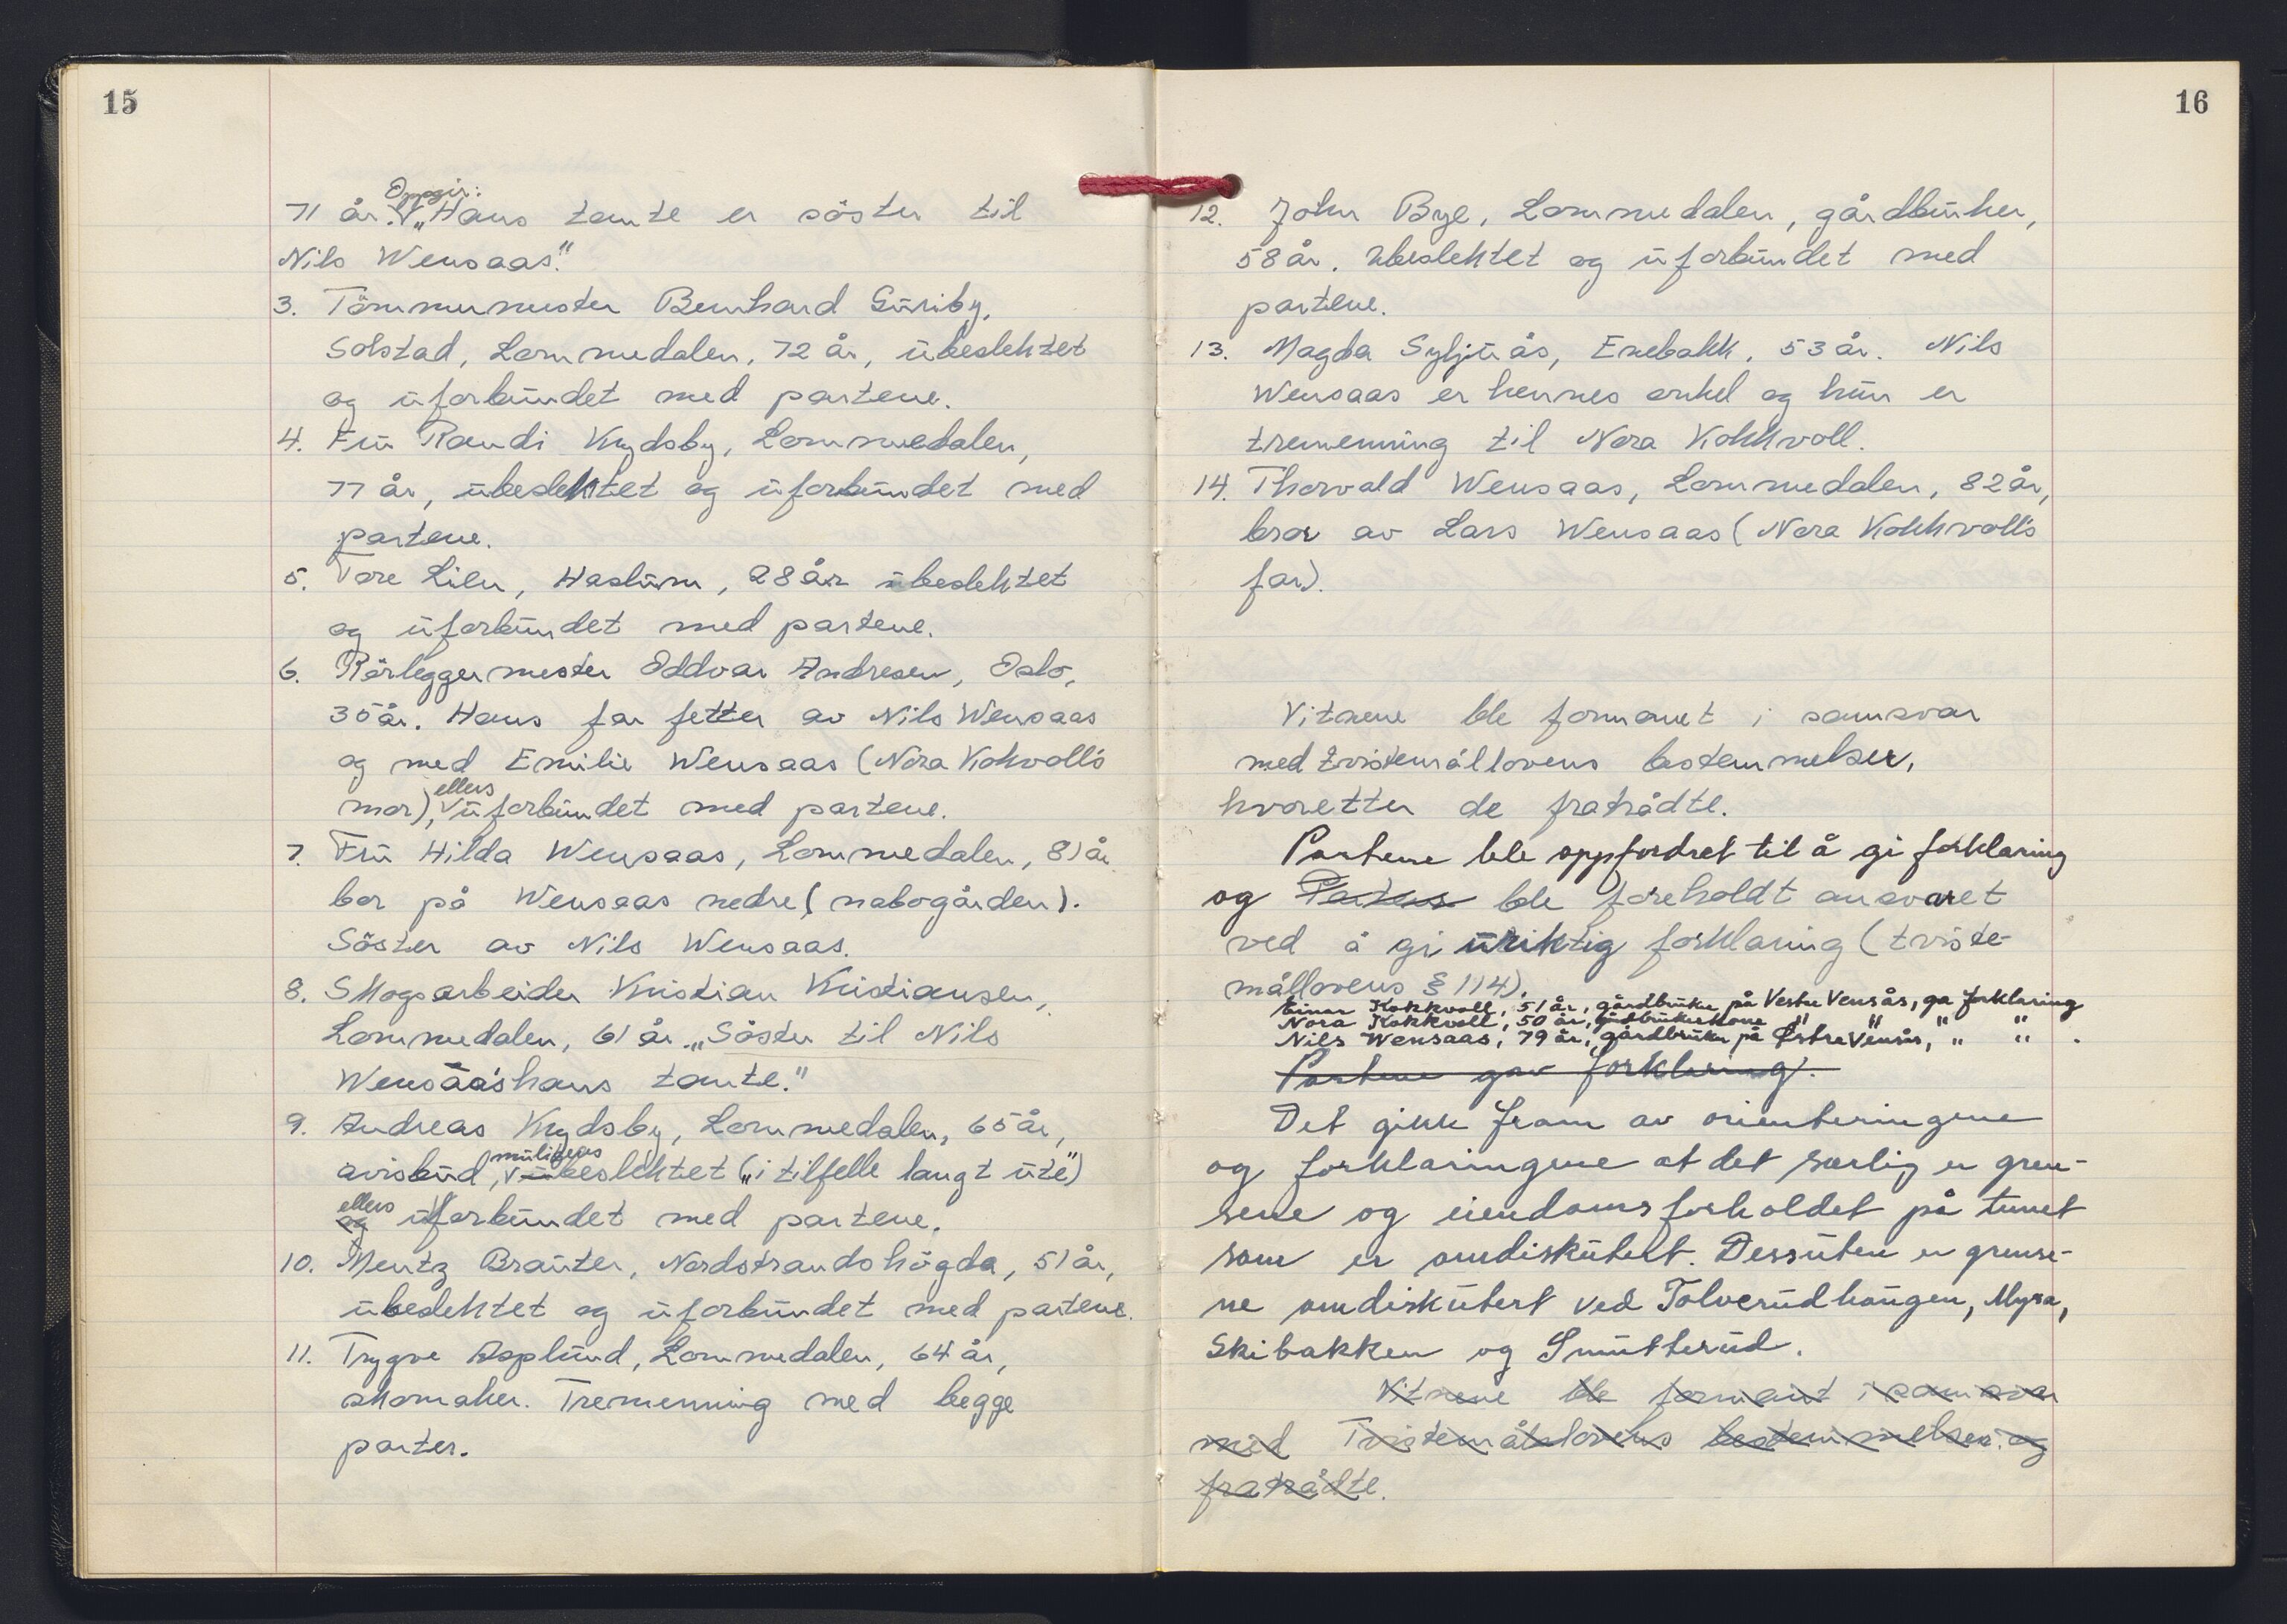 15
Oppgir:
71 år. V „Hans tante er söster til
Nils Wensaas."
3. Tömmermester Bernhard Güriby,
Solstad, Lommedalen, 72 år, übeslektet
og üforbündet med partene.
4. Frü Randi Krydsby, Lommedalen,
77 år, übeslektet og üforbündet med
partene.
5. Tore Lilu, Haslüm, 28 år übeslektet
og üforbündet med partene.
6. Rörleggermester Oddvar Andresen, Oslo,
35 år. Hans far fetter av Nils Wensaas
og med Emilie Wensaas (Nora Kokvoll's
ellers
mor), V üforbündet med partene.
7. Frü Hilda Wensaas, Lommedalen, 81 år
bor på Wensaas nedre (nabogården).
Söster av Nils Wensaas.
8. Skogsarbeider Kristian Kristiansen,
Lommedalen, 61 år. „Söster til Nils
Wensaas hans tante."
9. Andreas Krydsby, Lommedalen, 65 år,
müligens
avisbüd, V übeslektet („i tilfelle langt üte")
ellers
og üforbündet med partene.
10. Mentz Braüter, Nordstrandshögda, 51 år,
übeslektet og üforbündet med partene.
11. Trygve Asplünd, Lommedalen, 64 år,
skomaker. Tremenning med begge
parter.
16
12. John Bye, Lommedalen, gårdbrüker,
58 år. Übeslektet og üforbündet med
partene.
13. Magda Syljüås, Enebakk, 53 år. Nils
Wensaas er hennes onkel og hün er
tremenning til Nora Kokkvoll.
14. Thorvald Wensaas, Lommedalen, 82 år,
bror av Lars Wensaas (Nora Kokkvoll's
far).
Vitnene ble formanet i samsvar
med tvistemållovens bestemmelser,
hvoretter de fratrådte.
Partene ble oppfordret til å gi forklaring
og Partene ble foreholdt ansvaret
ved å gi üriktig forklaring (tviste-
mållovens § 114).
Einar Kokkvoll, 51 år, gårdbrüker på Vestre Vensås, ga forklaring
Nora Kokkvoll, 50 år, gårdbrükerkone " " " "
Nils Wensaas, 79 år, gårdbrüker på Østre Vensås, " " .
Partene gav forklaring.
Det gikk fram av orienteringene
og forklaringene at det særlig er gren-
sene og eiendomsforholdet på tunet
som er omdiskütert. Dessüten er grense-
ne omdiskütert ved Tolverüdhaugen, Myra,
Skibakken og Smütterüd.
Vitnene ble formant i samsvar
med Tvistemålslovens bestemmelser og
fratrådte.